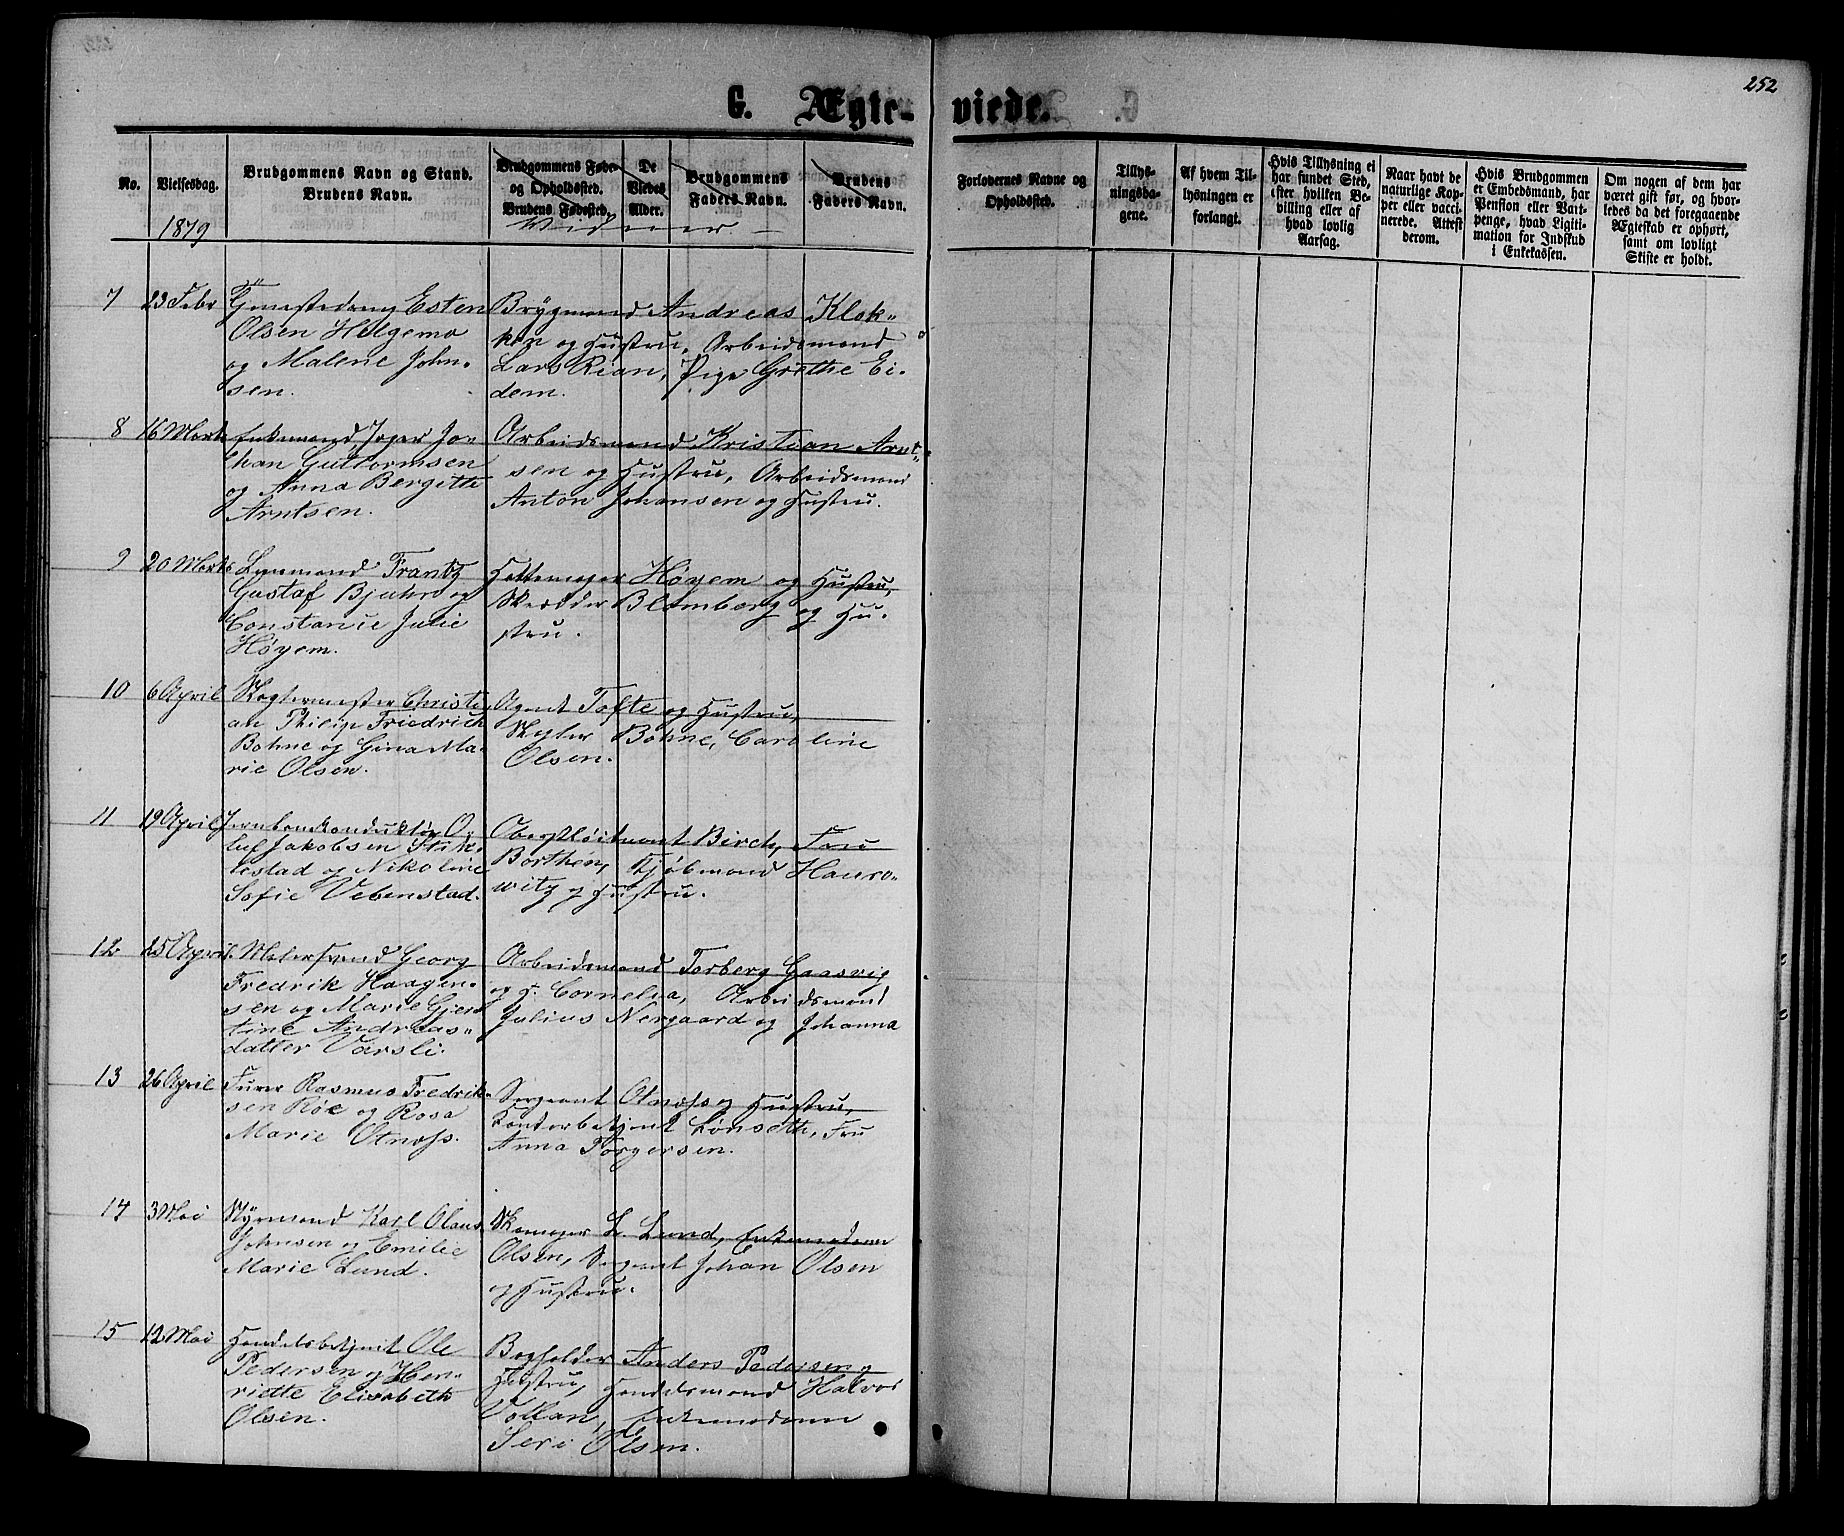 252
G. Ægte- viede.
No.
Vielsesdag.
Brudgommens Navn og Stand.
Brudens Navn.
Brudgommens Føde-
og Opholdssted.
Brudens Fødested.
De
Viedes
Alder.
Brudgommens
Faders Navn.
Brudens
Faders Navn.
Forlovernes Navne og
Opholdssted.
Tillys-
ningsda-
gene.
Af hvem Til-
lysningen er
forlangt.
Hvis Tillysning ei
har fundet Sted,
efter hvilken Be-
villing eller af
hvad lovlig
Aarsag.
Naar havt de
naturlige Kop-
per eller vacci-
nerede. Attest
derom.
Hvis Brudgommen
er Embedsmand, har
Pension eller Vart-
penge, hvad Ligiti-
mation for Indskud
i Enkekassen.
Om nogen af dem har
været gift før, og hvor-
ledes da det foregaaende
Ægteskab er ophørt,
samt om lovligt
Skifte er holdt.
1879
Vidner
7 23 Febr Esten
Olsen Helgemo
og Malene John-
sen.
Andreas Klok-
ken og Hustru, Arbeidsmand
Lars Rian, Pige Grethe Ei-
dem.
8 16 Marts Enkemand Jo-
han Guttormsen
og Anna Bergitte
Arntsen.
Arbeidsmand Kristian Arnt-
sen og Hustru, Arbeidsmand
Anton Johansen og Hustru.
9 20 Marts Frantz
Gustaf Bjuhr og
Constance Julie
Høyem.
Hattemager Høyem og Hustru,
Skrædder Blomberg og Hu-
stru.
10 6 April Slagtermester Christi-
an Philip Friedrich
Bohne og Gina Ma-
rie Olsen.
Agent Tofte og Hustru,
Bohne, Caroline
Olsen.
11 19 April Jernbanekonduktør O-
luf Jakobsen Stik-
lestad og Nikoline
Sofie Vebenstad.
Oberstløitnant Birch, Fru
Borthen, Kjøbmand Hauro-
witz og Hustru.
12 25 April Malersvend Georg
Fredrik Haagen-
sen og Marie Gjer-
tine Andreas-
datter Varsli.
Arbeidsmand Torberg Gaasvig
og H. Cornelia, Arbeidsmand
Julius Nergaard og Johanna
13 26 April Furer Rasmus Fredrik-
sen Röe og Rosa
Marie Otness.
Sergeant Otness og Hustru,
Lønseth, Fru
Anna Torgersen.
14 3 Mai Styrmand Karl Olaus
Johnsen og Emilie
Marie Lund.
Skomager L. Lund, Enkemadam
Olsen, Sergeant Johan Olsen
og Hustru.
15 12 Mai Handelsbetjent Ole
Pedersen og Hen-
riette Elisabeth
Olsen.
Bogholder Anders Pedersen og
Hustru, Handelsmand Halvor
Vollan, Enkemadam
Seri Olsen.